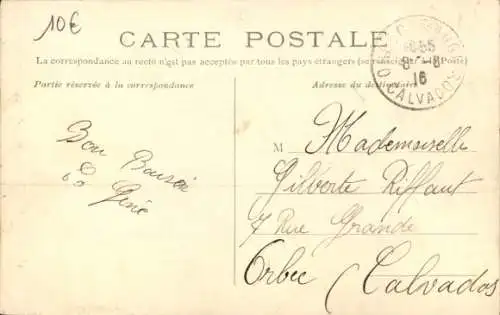 10€
CARTE POSTALE
La correspondance au recto n'est pas acceptée par tous les pays étrangers (se renseigner à la Poste)
Partie réservée à la correspondance
Adresse du destinataire
16
CALVADOS
Bon Baiser
Géné
M Mademoiselle
Gilberte Riffaut
7 Rue Grande
Orbec (Calvados